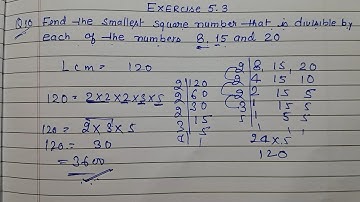 EXERCISE 5.3
Q10 Find the smallest square number that is divisible by
each of the numbers 8, 15 and 20
Lcm = 120
120 = 2×2×2×3×5
120 = 2×3×5
120 = 30
= 3600
2 120
2 60
2 30
2 15
3 5
1
2 8, 15, 20
2 4 15 10
2 2 15 5
3 1 15 5
5 1 5 5
1 1
24×5
120